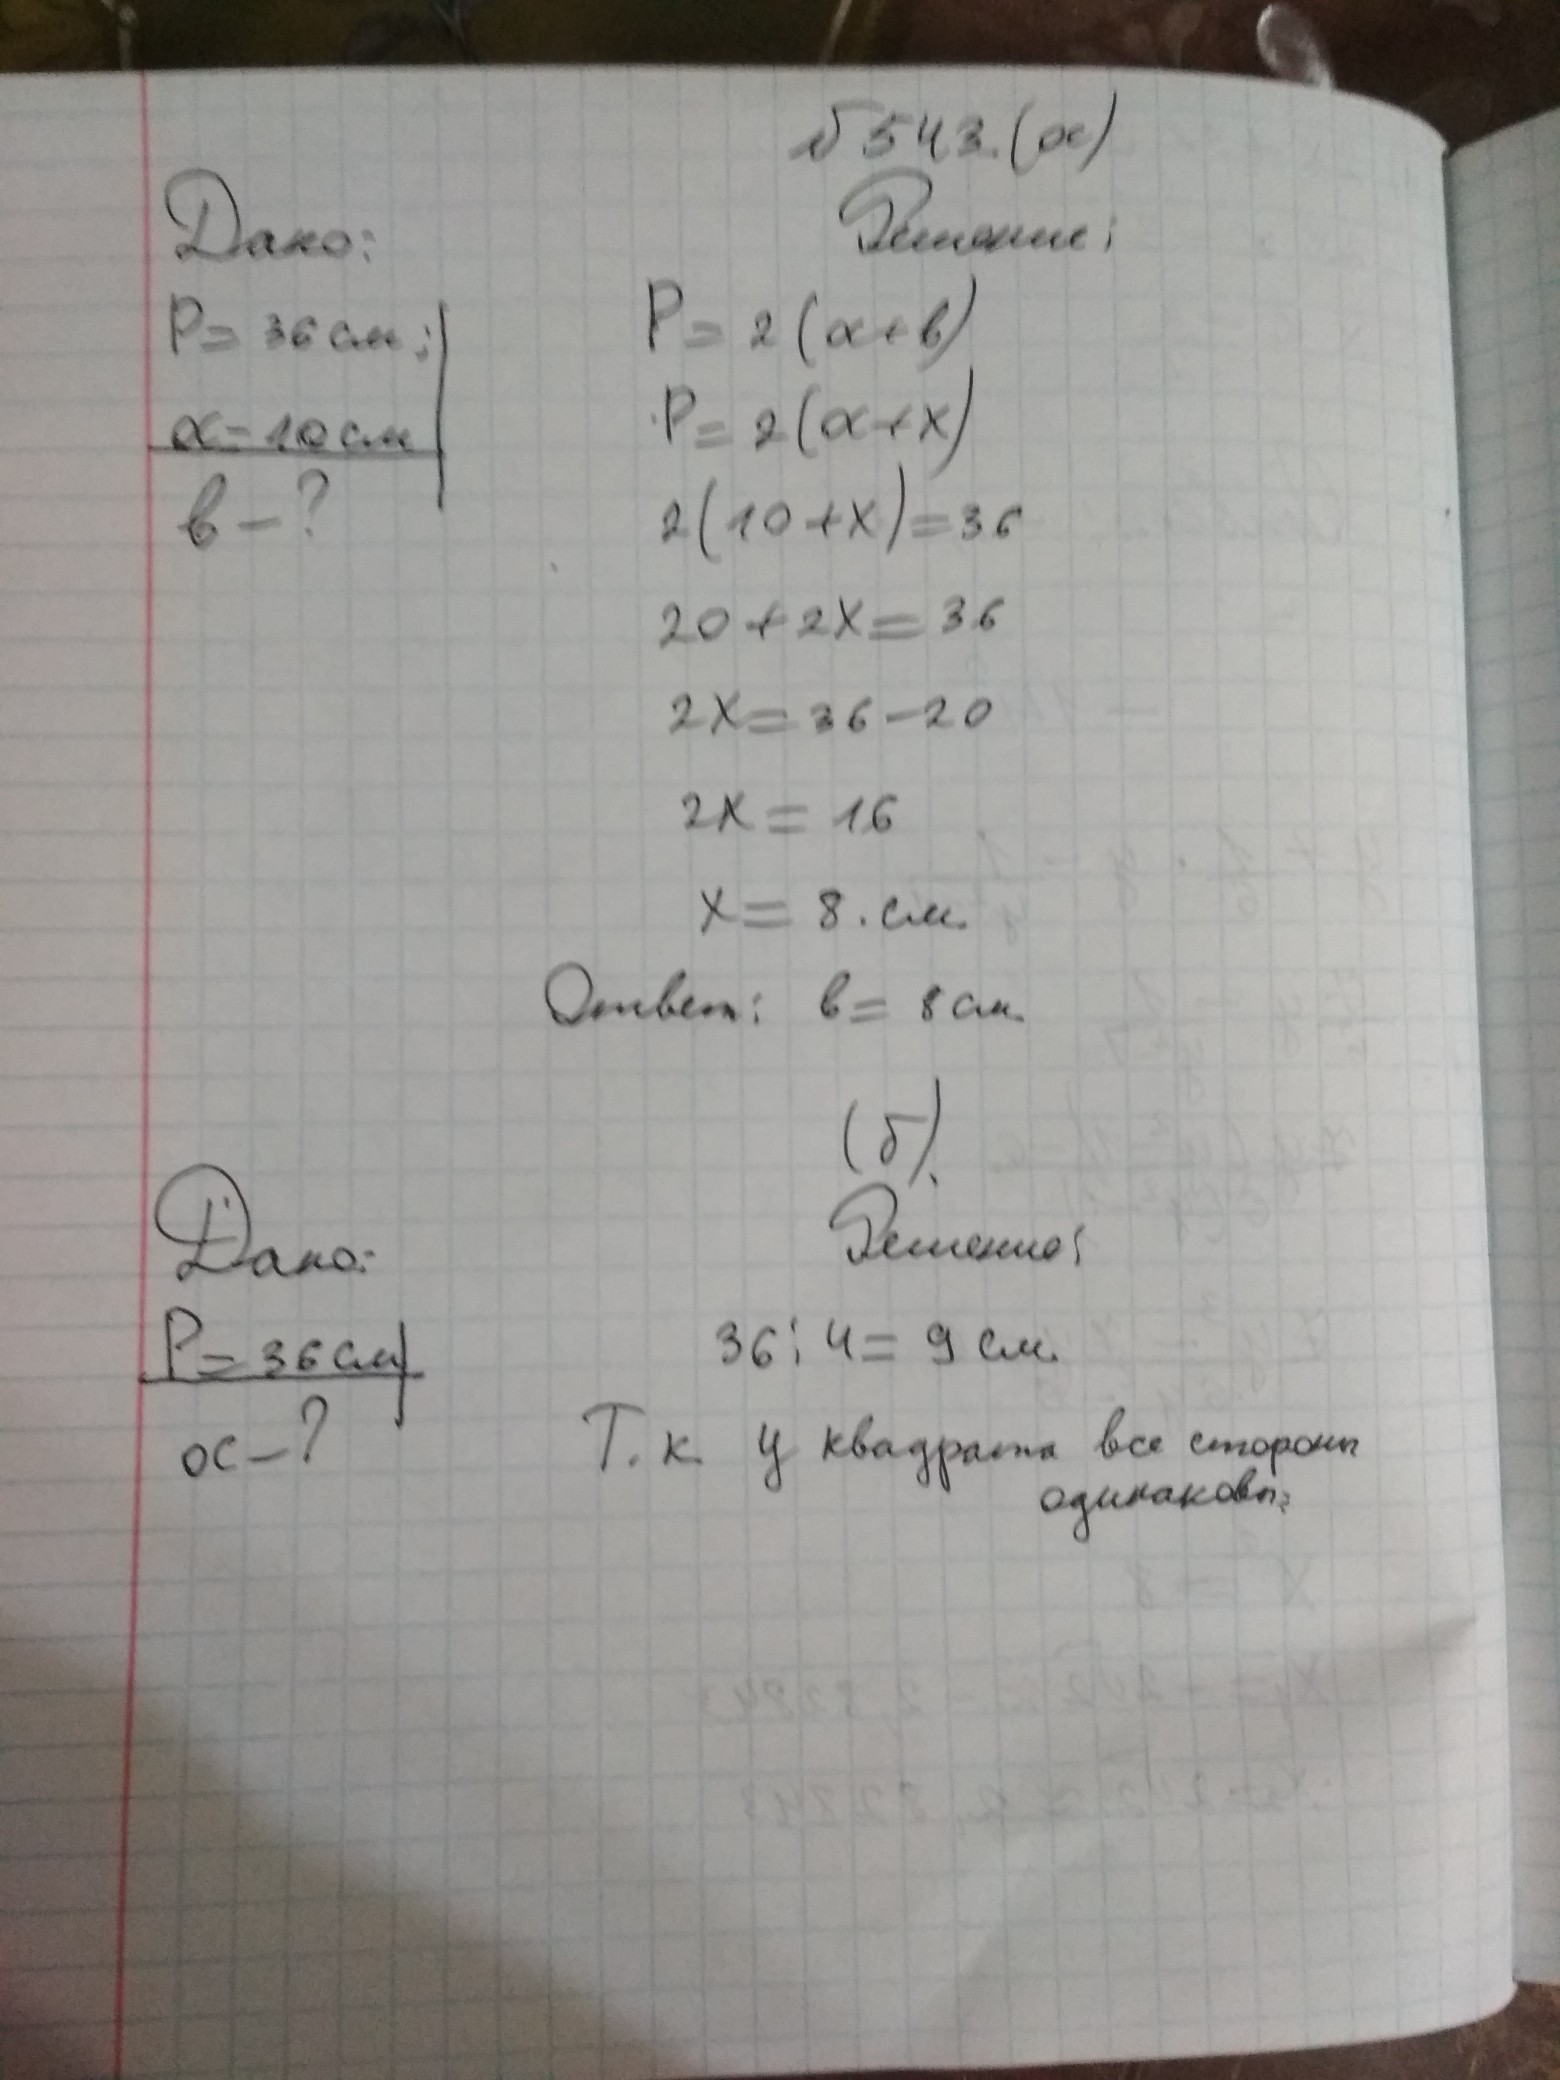 № 543. (а)
Дано:
Решение:
P = 36 см;
а = 10 см
в – ?
P = 2(а+в)
P = 2(а+x)
2(10+x)=36
20+2x=36
2x=36–20
2x=16
x= 8.см.
Ответ: в= 8 см.
(б).
Дано:
Решение:
P= 36 см
а – ?
36:4= 9 см.
Т.к. у квадрата все стороны
одинаковы.